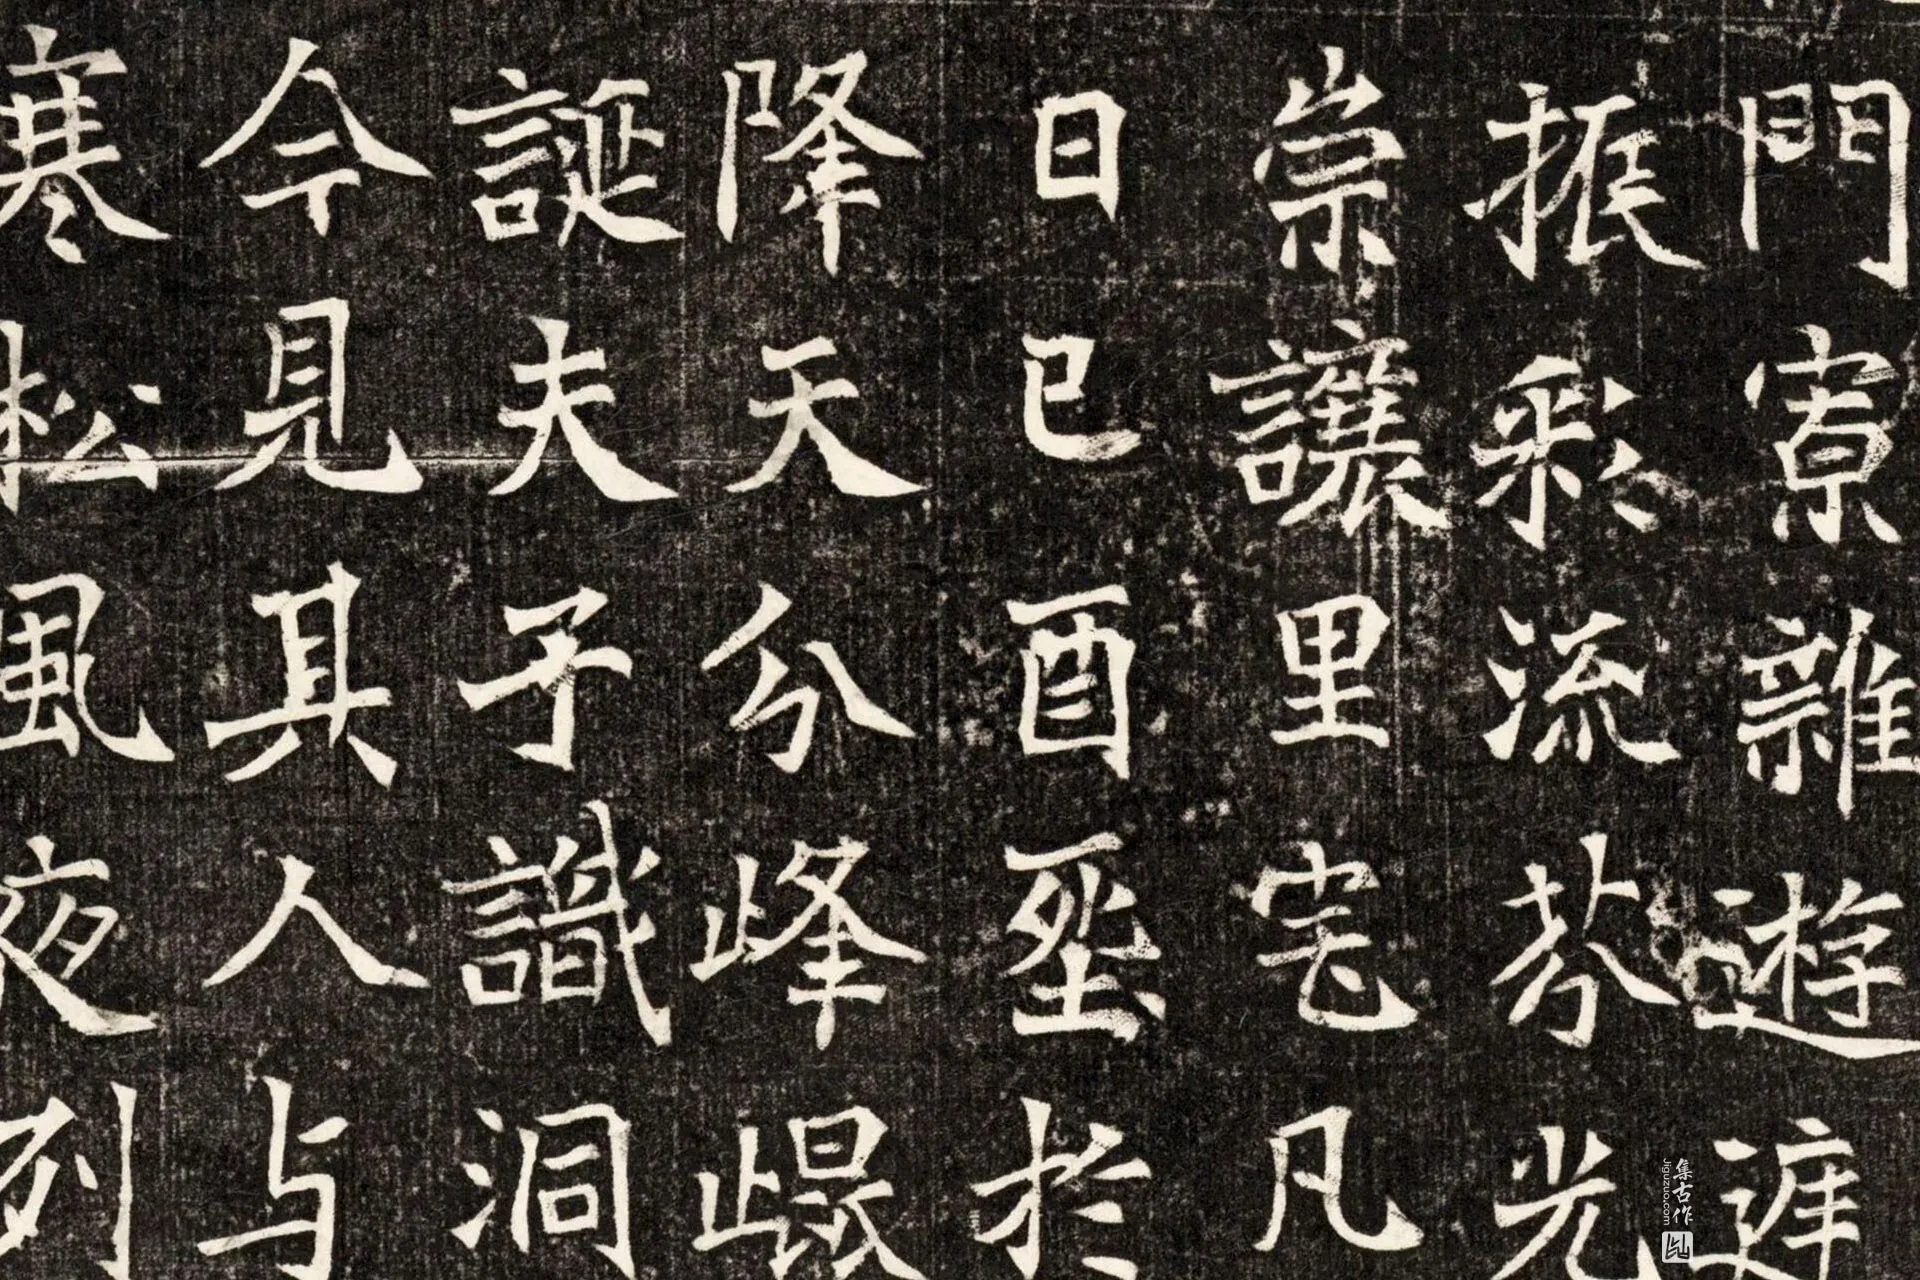 門寮雜遊遅
振彩流芬光
崇讓里宅凡
日已酉堲於
降天分峰崐
誕夫子識洞
今見其人与
寒松風夜列
集古作
Jiguzuo.com